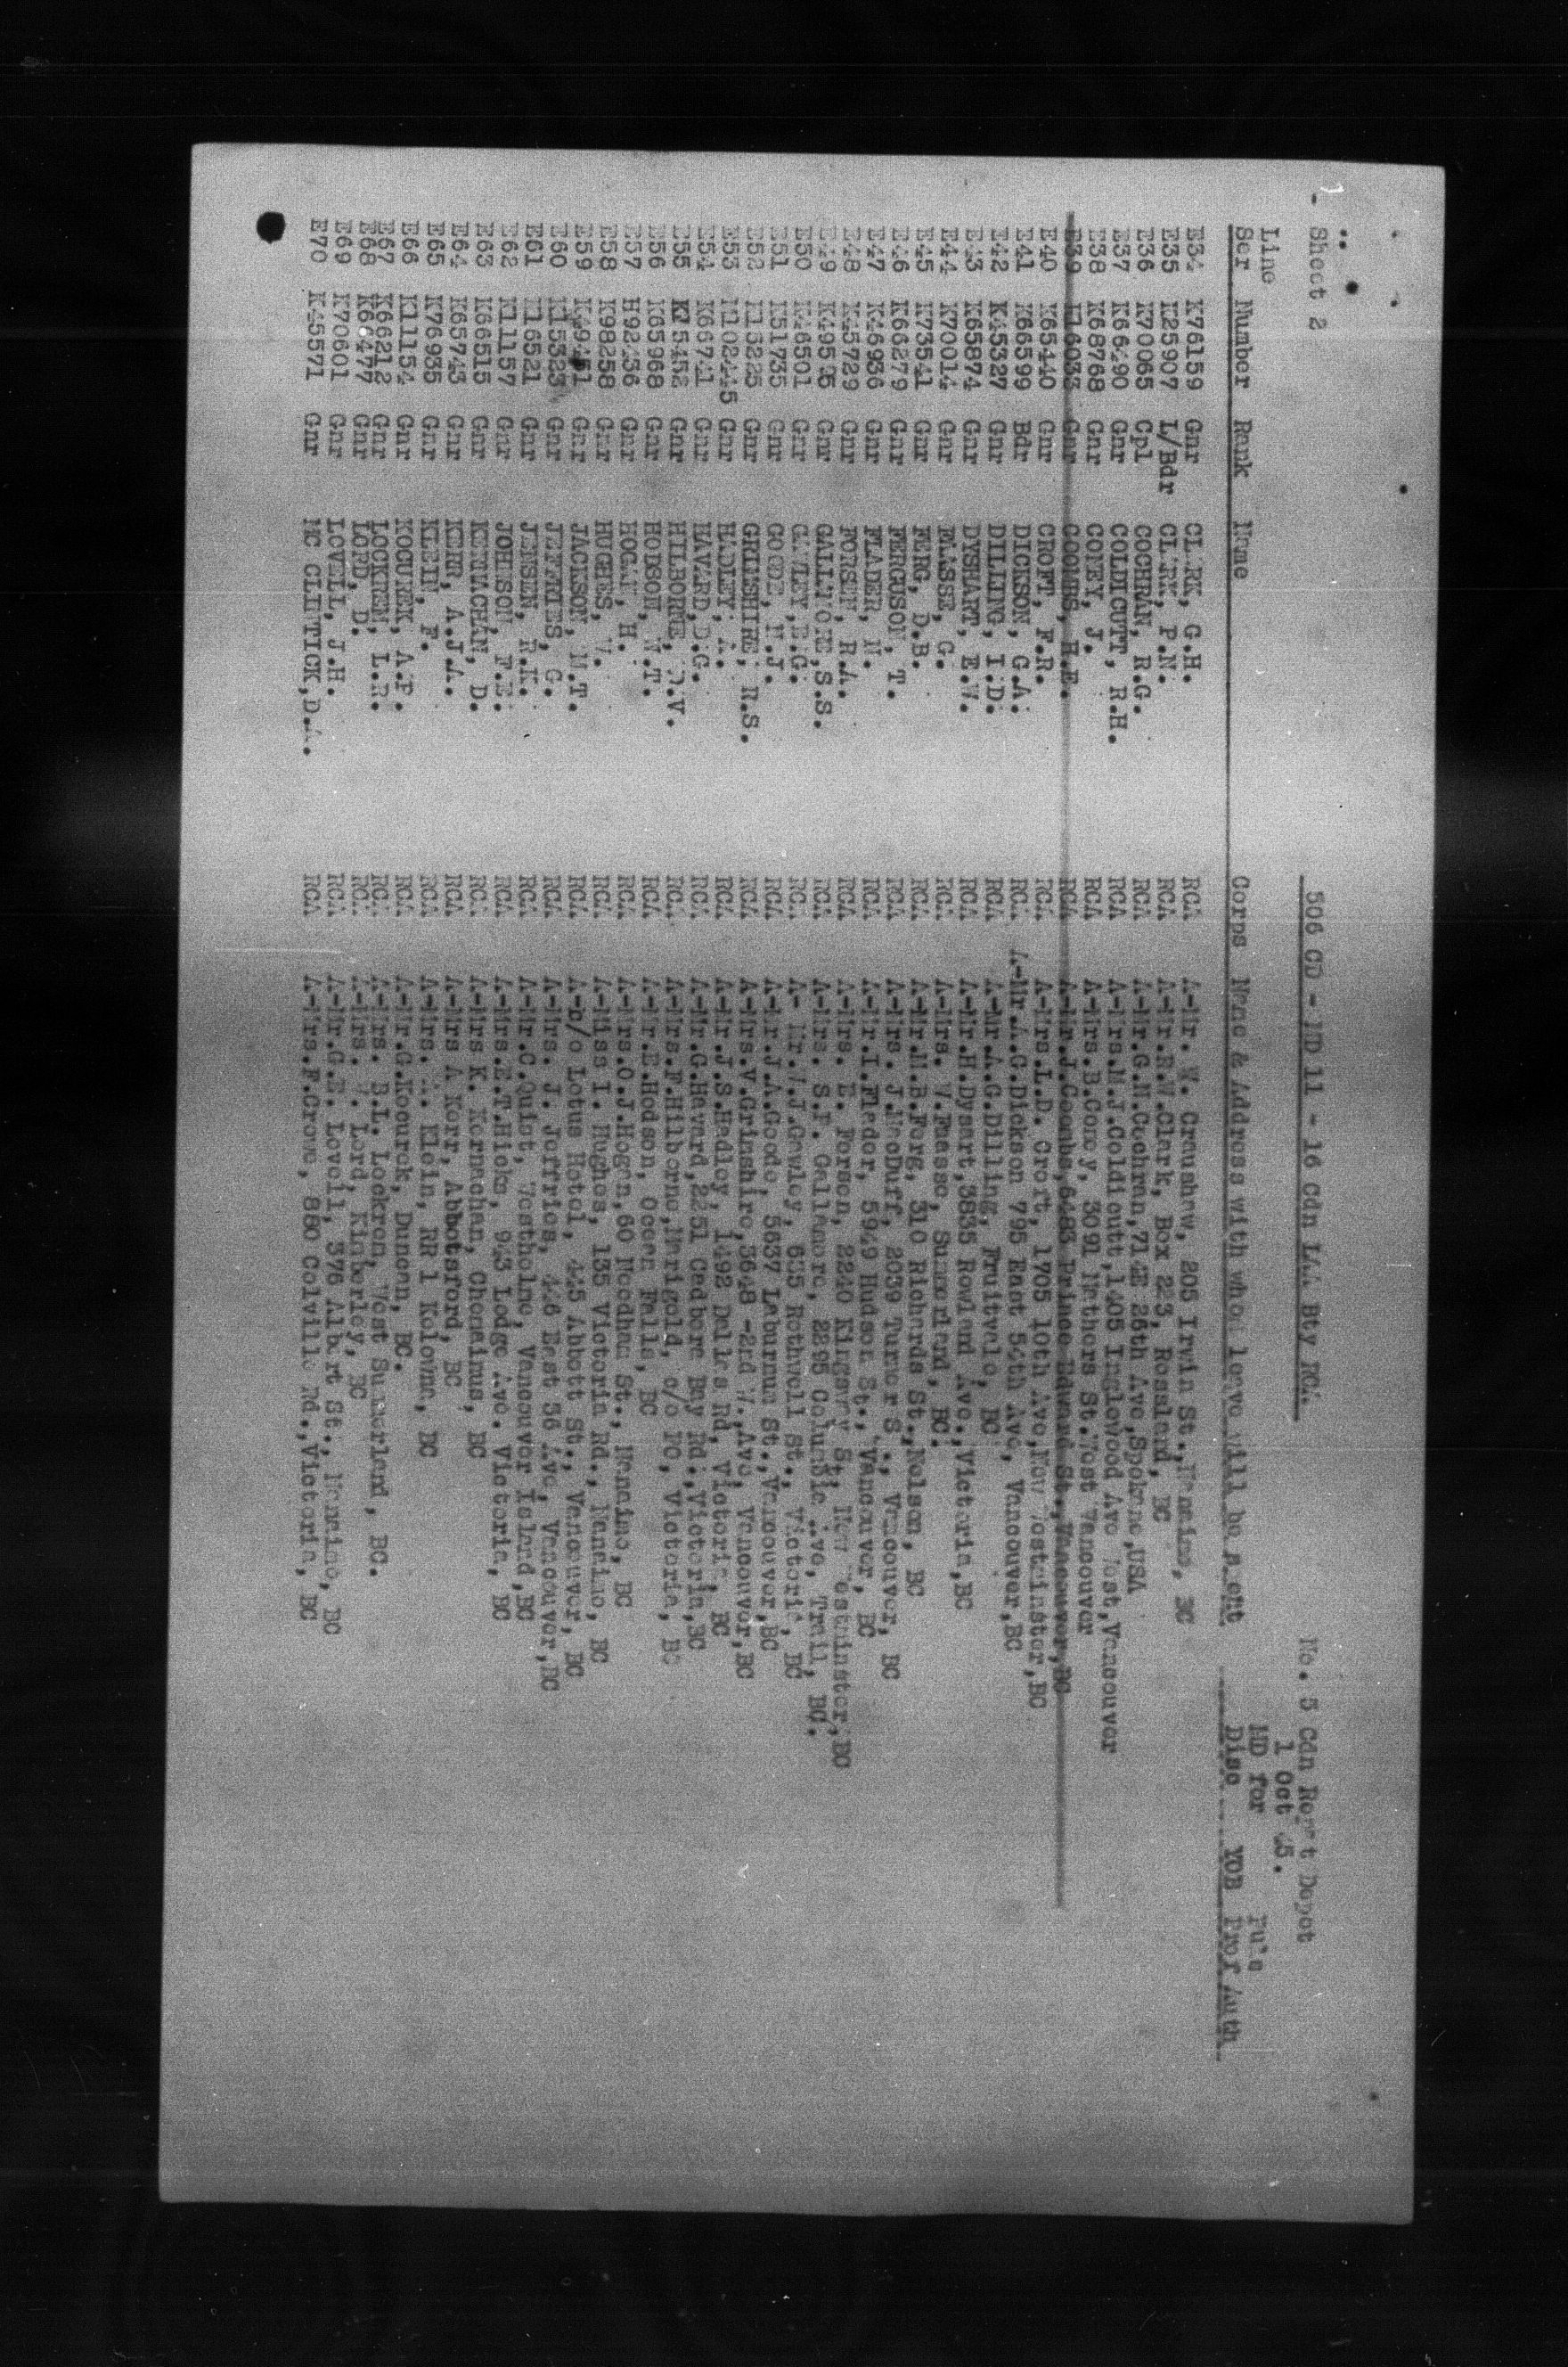 - Sheet 2
506 CD - MD 11 - 16 Cdn LAA Bty RCA.
No. 5 Cdn Rep't Depot
1 Oct 45.
Line MD for Fu's
Ser Number Rank Name Corps Name & Address with whom leave will be spent Disc YOB Prof Auth
E34 K76159 Gnr CLARK, G.H. RCA A-Mr. W. Craushaw, 205 Irwin St., Nanaimo, BC
E35 K25907 L/Bdr CLARK, P.N. RCA A-Mr.R.W.Clark, Box 223, Rossland, BC
E36 K70065 Cpl COCHRAN, R.G. RCA A-Mr.G.N.Cochran,714E 26th Ave,Spokane,USA
E37 K66490 Gnr COLDICUTT, R.H. RCA A-Mrs.M.J.Coldicutt,1405 Inglewood Ave West,Vancouver
E38 K68768 Gnr CONEY, J. RCA A-Mrs.B.Coney, 3091 Mathers St.West Vancouver
E39 K16033 Gnr COOMBS, H.E. RCA A-Mr.J.Coombs,6483 Prince Edward St.,Vancouver,BC
E40 K65440 Gnr CROFT, F.R. RCA A-Mrs.L.D. Croft, 1705 10th Ave,New Westminster,BC
E41 K66599 Bdr DICKSON, G.A. RCA A-Mr.A.G.Dickson 795 East 54th Ave, Vancouver,BC
E42 K45327 Gnr DILLING, I.D. RCA A-Mr.A.G.Dilling, Fruitvale, BC
E43 K65874 Gnr DYSHART, E.W. RCA A-Mr.H.Dysart,3835 Rowland Ave.,Victoria,BC
E44 K70014 Gnr FAASSE, G. RCA A-Mrs. W.Faasse, Summerland, BC.
E45 K73541 Gnr FERG, D.B. RCA A-Mr.M.B.Ferg, 310 Richards St.,Nelson, BC
E46 K66279 Gnr FERGUSON, T. RCA A-Mrs. J.MacDuff, 2039 Turner S ., Vancouver, BC
E47 K46936 Gnr FLADER, N. RCA A-Mr.I.Flader, 5949 Hudson St., Vancouver, BC
E48 K45729 Gnr FORSEN, R.A. RCA A-Mrs. E. Forsen, 2240 Kingsway St, New Westminster,BC
E49 K49535 Gnr GALLAMORE,S.S. RCA A-Mrs. S.F. Gallamore, 2295 Columbia Ave, Trail, BC.
E50 K46501 Gnr GAWLEY,E.G. RCA A- Mr.W.J.Gawley, 635 Rothwell St., Victoria, BC
E51 K51735 Gnr GOODE, N.J. RCA A-Mr.J.A.Goode, 5637 Laburnum St.,Vancouver,BC
E52 K15225 Gnr GRIMSHIRE, R.S. RCA A-Mrs.V.Grimshire,3648 -2nd W.,Ave, Vancouver,BC
E53 K102445 Gnr HADLEY, A. RCA A-Mr.J.S.Hadley, 1492 Dallas Rd, Victoria, BC
E54 K66741 Gnr HAVARD,D.G. RCA A-Mr.G.Havard,2251 Cadboro Bay Rd.,Victoria,BC
E55 K15452 Gnr HILBORNE, D.V. RCA A-Mrs.F.Hilborne,Marigold, c/o PO, Victoria, BC
E56 K65968 Gnr HODSON, W.T. RCA A-Mr.E.Hodson, Ocean Falls, BC
E57 H92436 Gnr HOGAN, H. RCA A-Mrs.O.J.Hogan,60 Needham St., Nanaimo, BC
E58 K98258 Gnr HUGHES, W. RCA A-Miss I. Hughes, 135 Victoria Rd., Nanaimo, BC
E59 K49451 Gnr JACKSON, M.T. RCA A-c/o Lotus Hotel, 445 Abbott St., Vancouver, BC
E60 K15323 Gnr JEFFRIES, G. RCA A-Mrs. J. Jeffries, 446 East 36 Ave, Vancouver,BC
E61 K16521 Gnr JENSEN, R.K. RCA A-Mr.C.Quist, Westholme, Vancouver Island,BC
E62 K11157 Gnr JOHNSON, F.E. RCA A-Mrs.E.T.Hicks, 943 Lodge Ave. Victoria, BC
E63 K66515 Gnr KERNACHAN, D. RCA A-Mrs K. Kernachan, Chemainus, BC
E64 K65743 Gnr KERR, A.J.A. RCA A-Mrs A Kerr, Abbotsford, BC
E65 K76935 Gnr KLEIN, F. RCA A-Mrs. A. Klein, RR 1 Kelowna, BC
E66 K11154 Gnr KOCUREK, A.F. RCA A-Mr.G.Kocurek, Duncan, BC.
E67 K66212 Gnr LOCKREM, L.R. RCA A-Mrs. B.L. Lockrem, West Summerland, BC.
E68 K66477 Gnr LORD, D. RCA A-Mrs. W. Lord, Kimberley, BC
E69 K70601 Gnr LOVELL, J.H. RCA A-Mr.G.E. Lovell, 376 Albert St., Nanaimo, BC
E70 K45571 Gnr MC CLINTICK,D.A. RCA A-Mrs.F.Crowe, 860 Colville Rd.,Victoria, BC